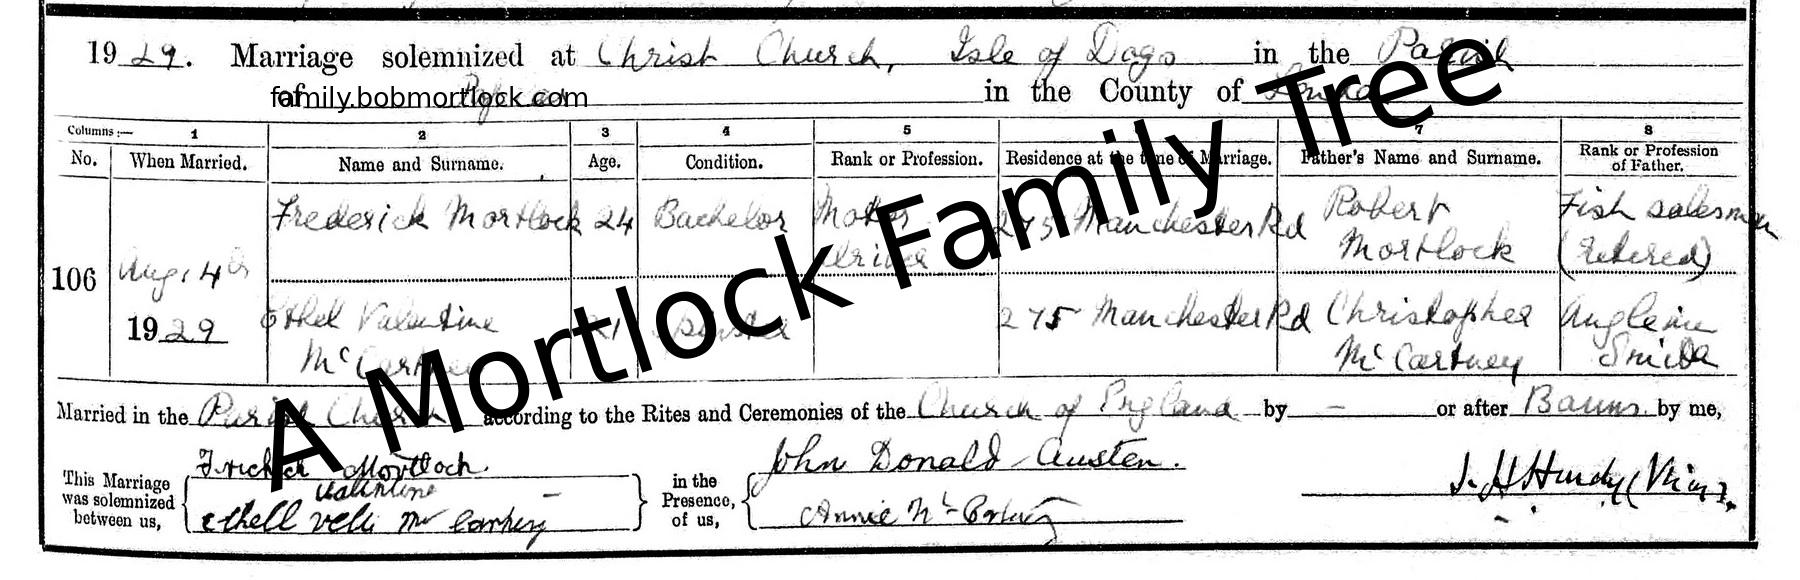 1929. Marriage solemnized at Christ Church, Isle of Dogs in the Parish
of in the County of London
family.bobmortlock.com
Columns:— 1 2 3 4 5 7 8
No. When Married. Name and Surname. Age. Condition. Rank or Profession. Residence at the time of Marriage. Father's Name and Surname. Rank or Profession of Father.
106 Aug. 4th 1929
Frederick Mortlock 24 Bachelor Motor driver 275 Manchester Rd Robert Mortlock Fish salesman (retired)
Ethel Valentine McCartney 21 Spinster 275 Manchester Rd Christopher McCartney Smith
Married in the Parish Church according to the Rites and Ceremonies of the Church of England by — or after Banns by me,
This Marriage was solemnized between us,
Mortlock.
Valentine
Ethell
in the Presence, of us,
John Donald Austen.
Annie
A Mortlock Family Tree